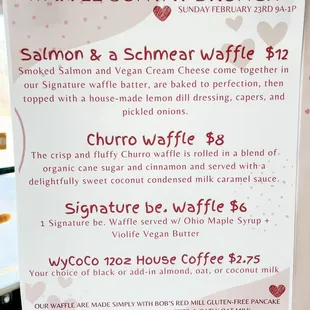 SUNDAY FEBRUARY 23RD 9A-1P
Salmon & a Schmear Waffle $12
Smoked Salmon and Vegan Cream Cheese come together in
our Signature waffle batter, are baked to perfection, then
topped with a house-made lemon dill dressing, capers, and
pickled onions.
Churro Waffle $8
The crisp and fluffy Churro waffle is rolled in a blend of
organic cane sugar and cinnamon and served with a
delightfully sweet coconut condensed milk caramel sauce.
Signature be. Waffle $6
1 Signature be. Waffle served w/ Ohio Maple Syrup +
Violife Vegan Butter
WyCoCo 12oz House Coffee $2.75
Your choice of black or add-in almond, oat, or coconut milk
OUR WAFFLE ARE MADE SIMPLY WITH BOB'S RED MILL GLUTEN-FREE PANCAKE